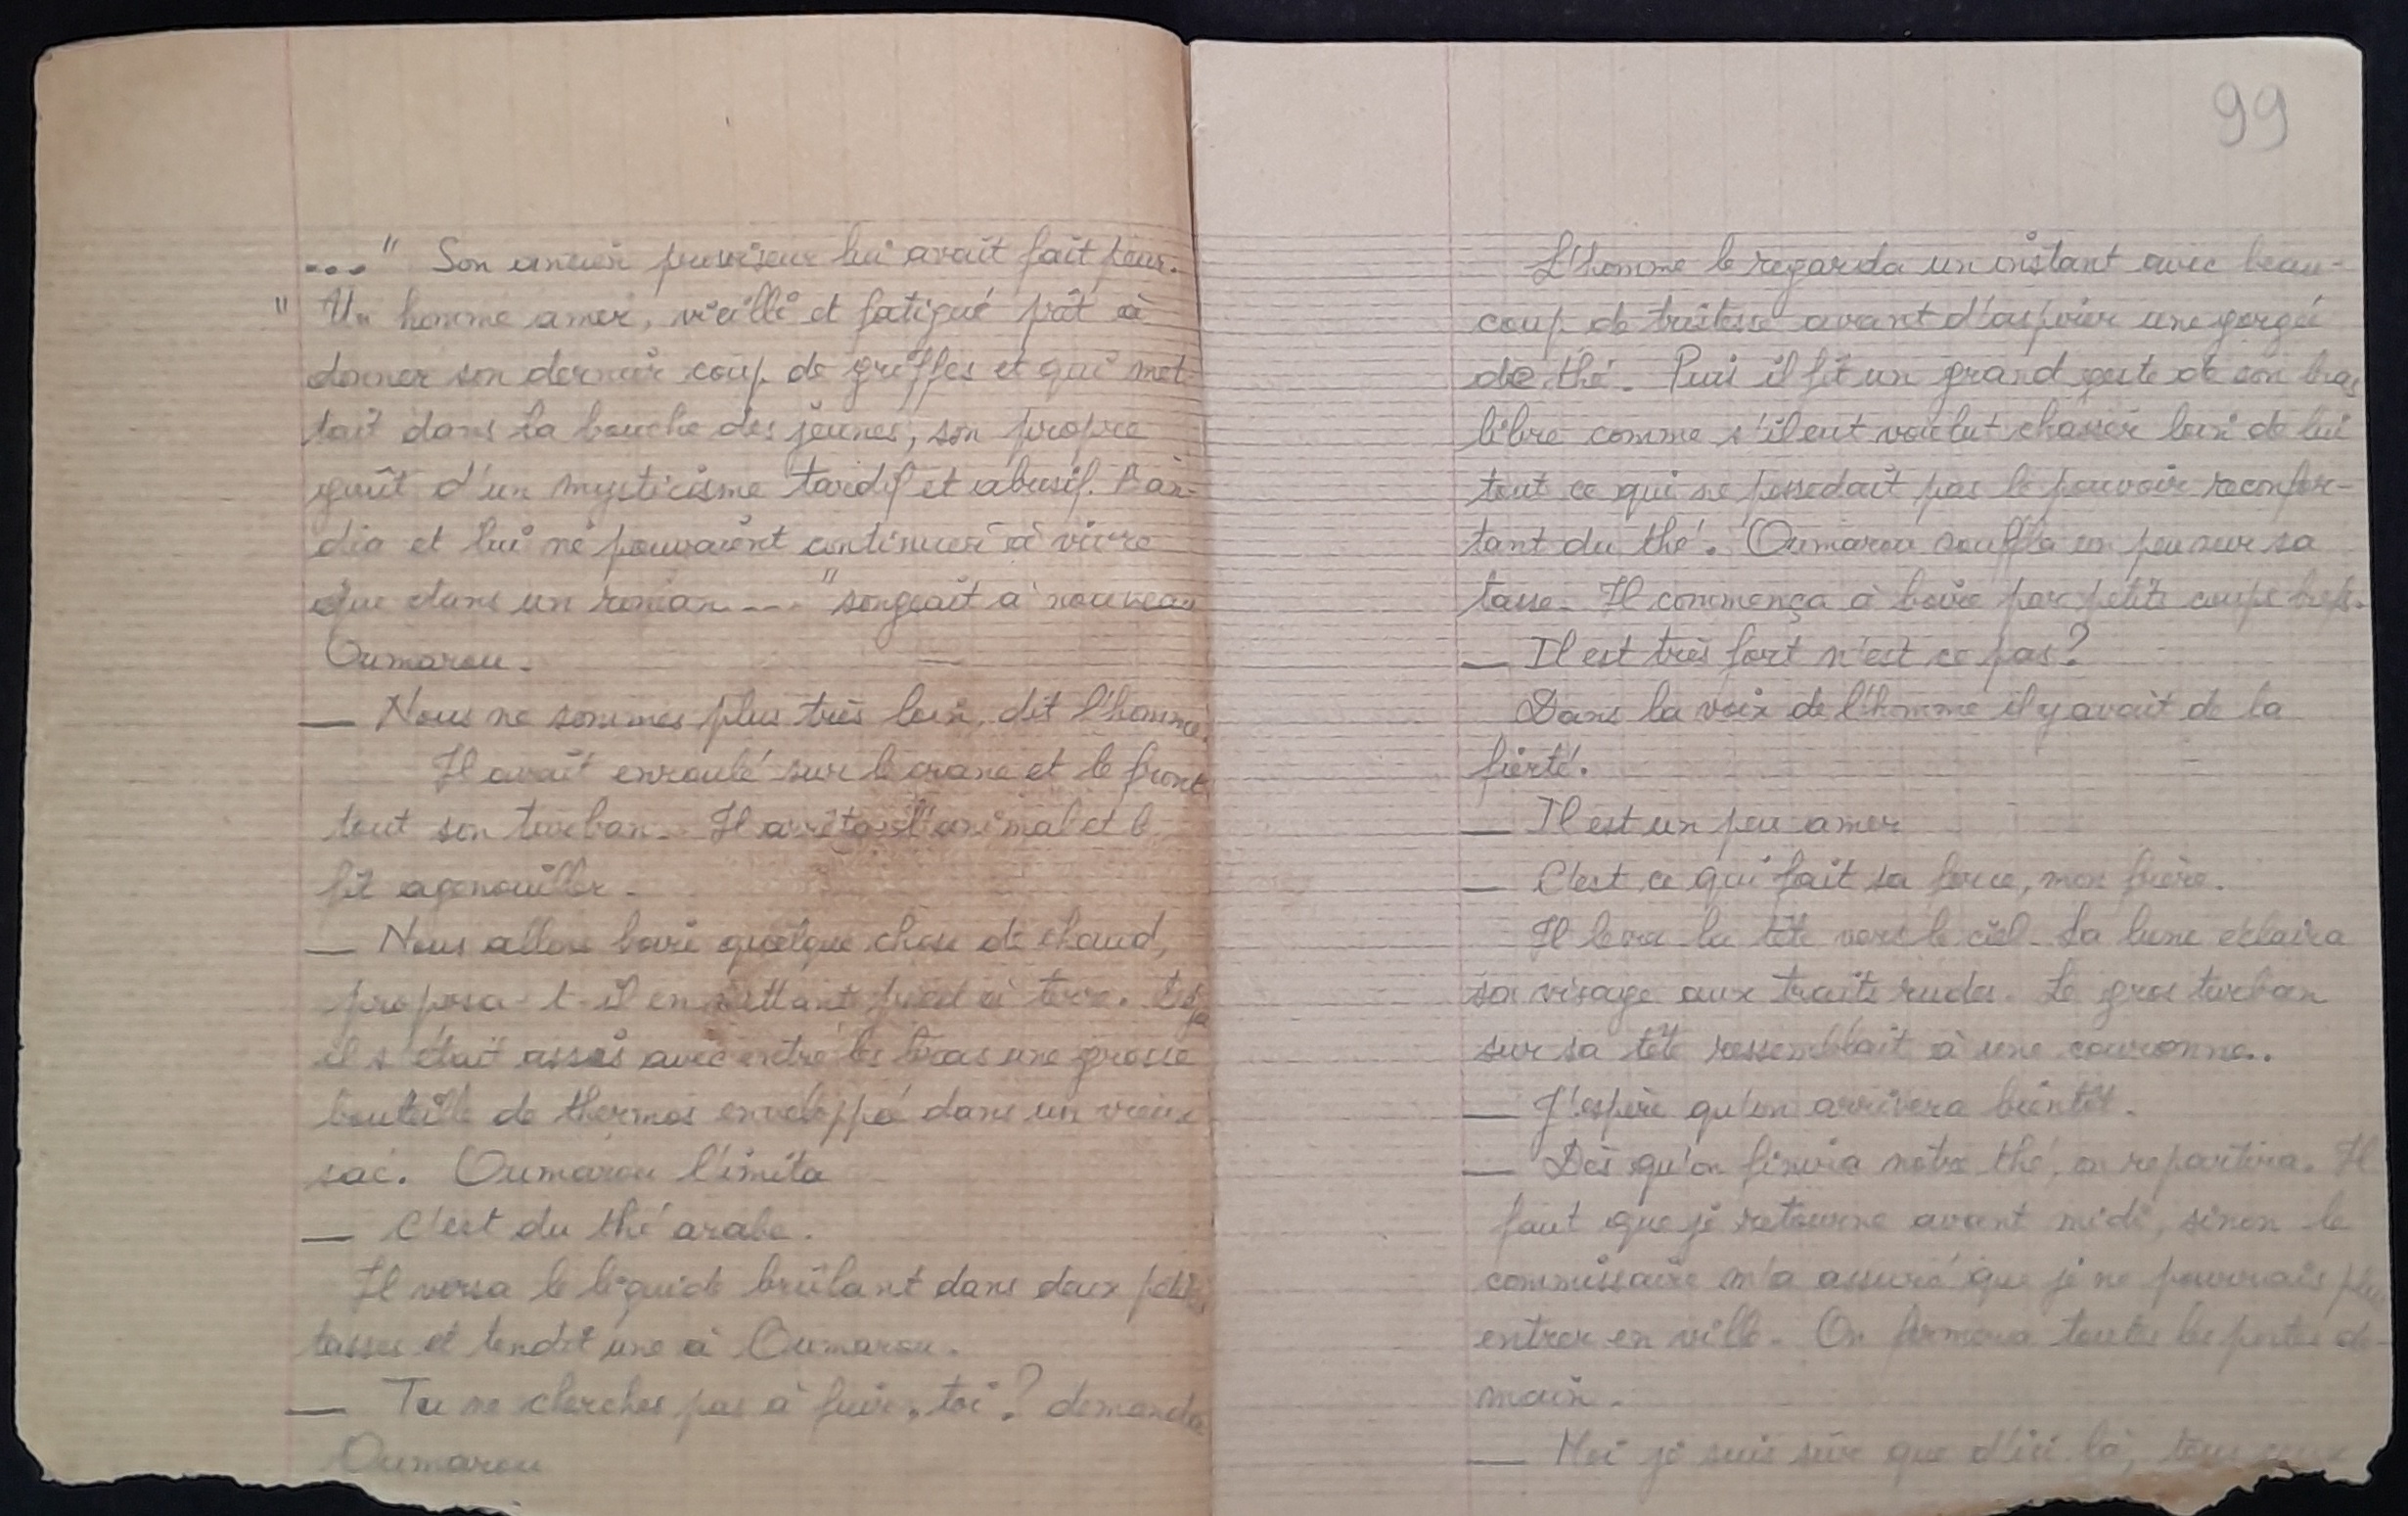 ..." Son ancien proviseur lui avait fait peur.
" Un homme amer, vieilli et fatigué prêt à
donner son dernier coup de griffes et qui met-
tait dans la bouche des jeunes, son propre
goût d'un mysticisme tardif et abusif. Ban-
dia et lui ne pouvaient continuer à vivre
que dans un roman ..." songeait à nouveau
Oumarou.
— Nous ne sommes plus très loin, dit l'homme.
Il avait enroulé sur le crane et le front
tout son turban. Il arrêta l'animal et le
fit agenouiller.
— Nous allons boire quelque chose de chaud,
proposa-t-il en mettant pied à terre. Déjà
il s'était assis avec entre les bras une grosse
bouteille de thermos enveloppé dans un vieux
sac. Oumarou l'imita
— C'est du thé arabe.
Il versa le liquide brûlant dans deux petites
tasses et tendit une à Oumarou.
— Tu ne cherches pas à fuir, toi ? demanda
Oumarou
99
L'homme le regarda un instant avec beau-
coup de tristesse avant d'aspirer une gorgée
de thé. Puis il fit un grand geste de son bras
libre comme s'il eut voulut chasser loin de lui
tout ce qui ne possedait pas le pouvoir reconfor-
tant du thé. Oumarou souffla un peu sur sa
tasse. Il commença à boire par petits coups brefs.
— Il est très fort n'est ce pas ?
Dans la voix de l'homme il y avait de la
fierté.
— Il est un peu amer
— C'est ce qui fait sa force, mon frère.
Il leva la tête vers le ciel. La lune eclaira
son visage aux traits rudes. Le gros turban
sur sa tête ressemblait à une couronne..
— J'espère qu'on arrivera bientôt.
— Dès qu'on finira notre thé, on repartira. Il
faut que je retourne avant midi, sinon le
commissaire m'a assuré que je ne pourrais plus
entrer en ville. On fermera toutes les portes de-
main.
— Moi je suis sûr que d'ici là, tous ceux